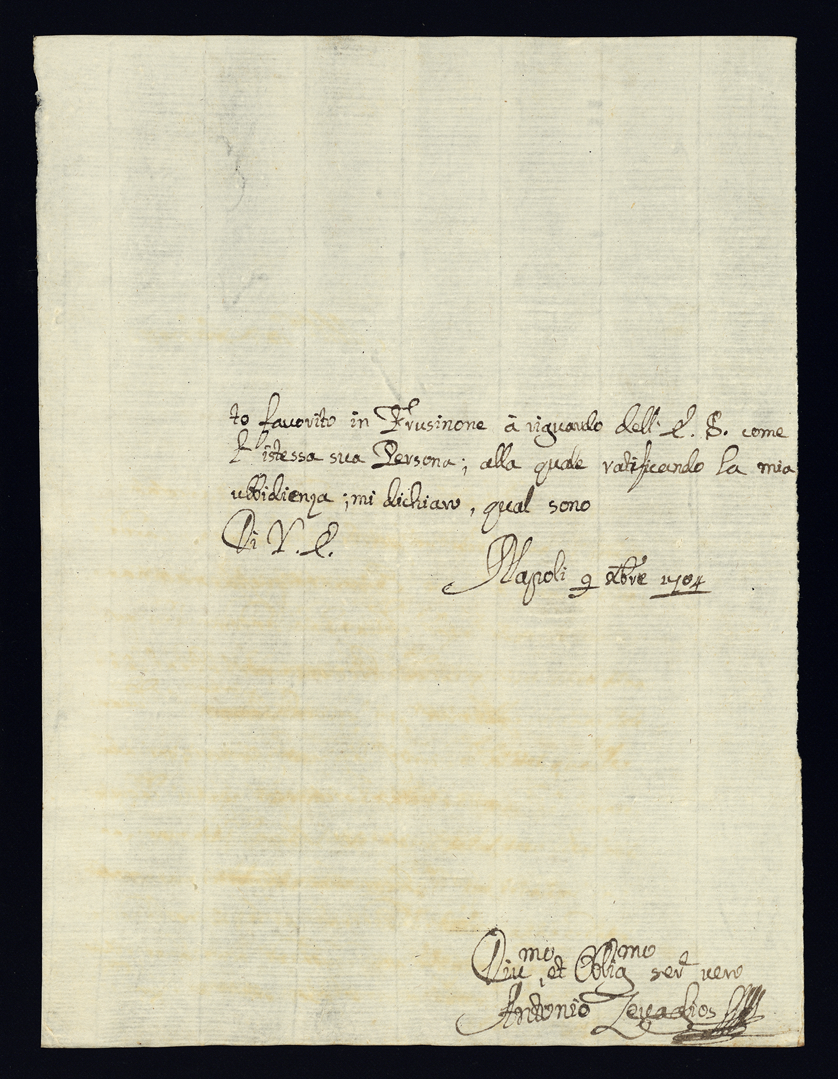 to favorito in Frusinone à riguardo dell'E. S. come
l'istessa sua Persona; alla quale ratificando la mia
ubbidienza; mi dichiaro, qual sono
Di V. E.
Napoli 9 Xbre 1704
Div.mo et Oblig.mo ser.e vero
Antonio